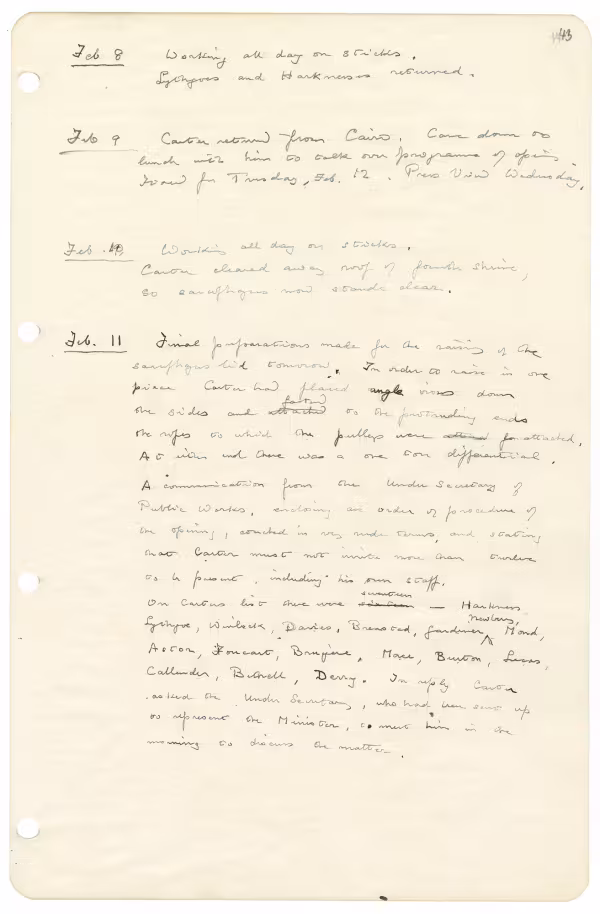 43
Feb 8 Working all day on sticks.
Lythgoes and Harknesses returned.
Feb 9 Carter returned from Cairo. Came down to
lunch with him to talk over programme of opening.
Fixed for Tuesday, Feb. 12. Press View Wednesday.
Feb. 10 Working all day on sticks.
Carter cleared away roof of fourth shrine,
so sarcophagus now stands clear.
Feb. 11 Final preparations made for the raising of the
sarcophagus lid tomorrow. In order to raise in one
piece Carter had placed angle irons down
the sides and attached to the protruding ends
the ropes to which the pulleys were attached.
At either end there was a one ton differential.
A communication from the Under Secretary of
Public Works, enclosing an order of procedure of
the opening, couched in very rude terms, and stating
that Carter must not invite more than twelve
to be present, including his own staff.
seventeen
On Carter's list there were — Harkness,
Newberry,
Lythgoe, Winlock, Davies, Breasted, Gardiner, Mond,
Astor, Foucart, Bruyère, Mace, Burton, Lucas,
Callender, Bethell, Derry. In reply Carter
asked the Under Secretary, who had been sent up
to represent the Minister, to meet him in the
morning to discuss the matter.